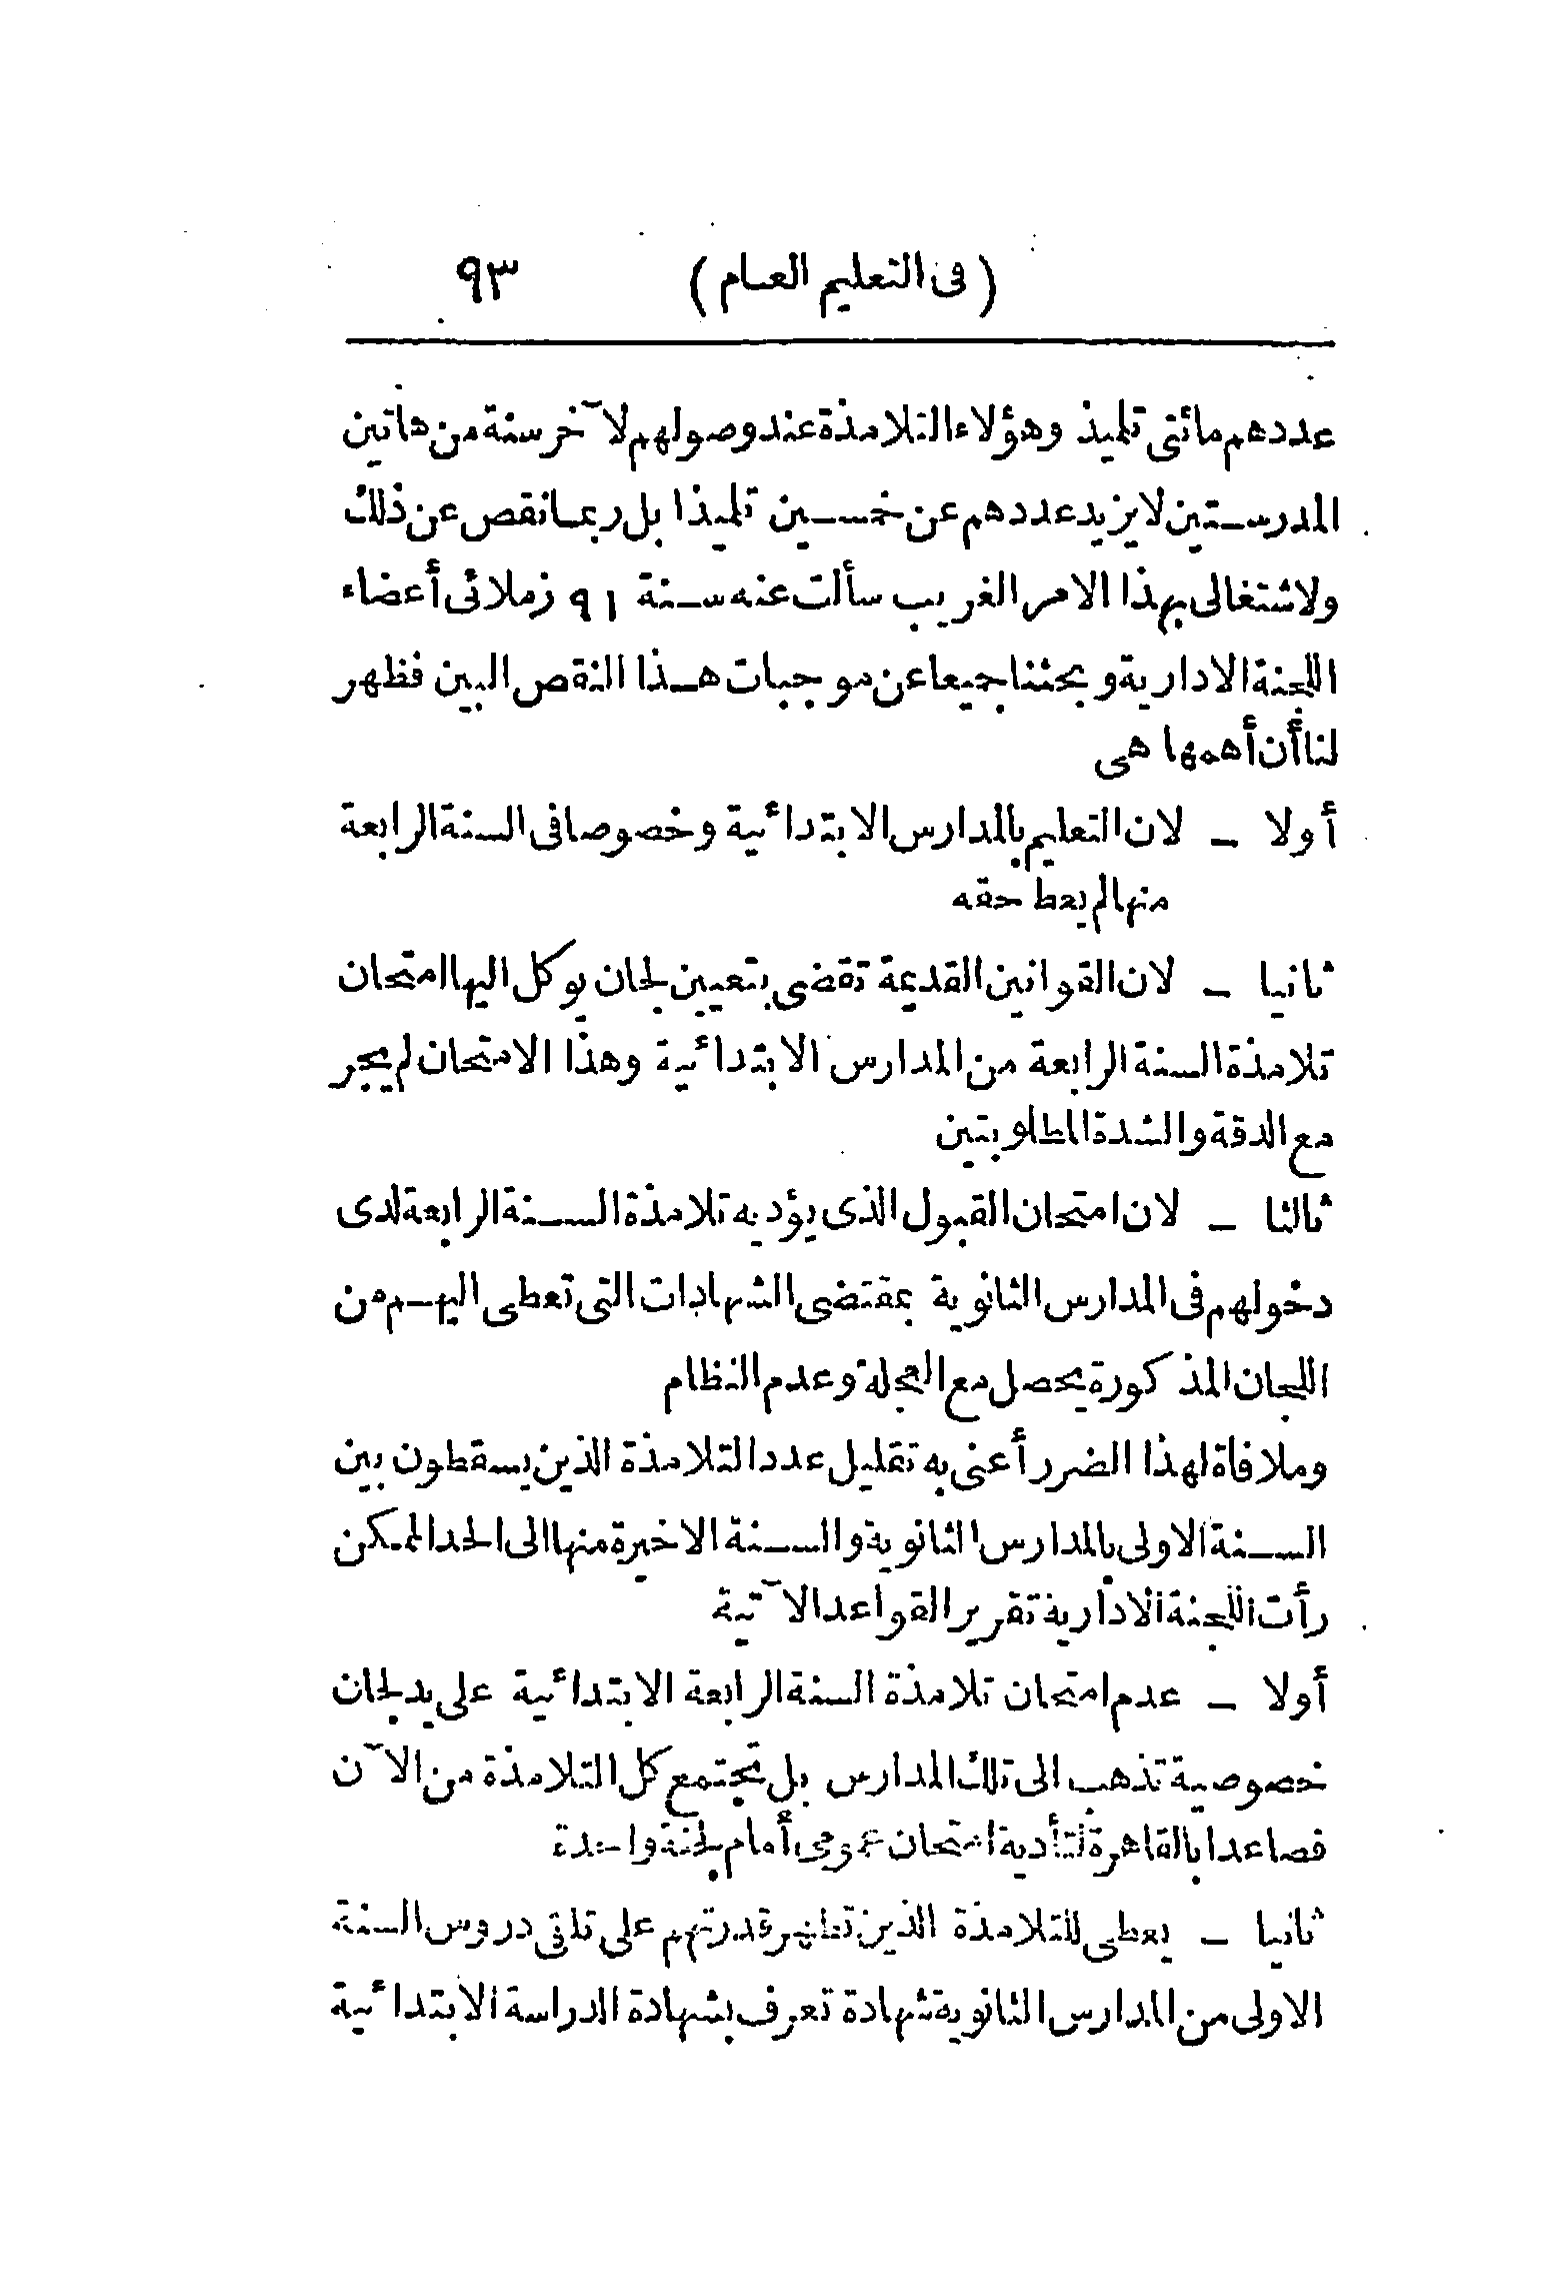 (فى التعليم العام) ٩٣
عددهم مائتى تلميذ وهؤلاء التلامذة عند وصولهم لآخر سنة من هاتين
المدرستين لا يزيد عددهم عن خمسين تلميذا بل ربما نقص عن ذلك
ولاشتغالى بهذا الامر الغريب سألت عنه سنة ٩١ زملائى أعضاء
اللجنة الادارية وبحثنا جميعا عن موجبات هذا النقص البين فظهر
لنا أن أهمها هى
أولا - لان التعليم بالمدارس الابتدائية وخصوصا فى السنة الرابعة
منها لم يعط حقه
ثانيا - لان القوانين القديمة تقضى بتعيين لجان يوكل اليها امتحان
تلامذة السنة الرابعة من المدارس الابتدائية وهذا الامتحان لم يجر
مع الدقة والشدة المطلوبتين
ثالثا - لان امتحان القبول الذى يؤديه تلامذة السنة الرابعة لدى
دخولهم فى المدارس الثانوية بمقتضى الشهادات التى تعطى اليهم من
اللجان المذكورة يحصل مع العجلة وعدم النظام
وملافاة لهذا الضرر أعنى به تقليل عدد التلامذة الذين يسقطون بين
السنة الاولى بالمدارس الثانوية والسنة الاخيرة منها الى الحد الممكن
رأت اللجنة الادارية تقرير القواعد الآتية
أولا - عدم امتحان تلامذة السنة الرابعة الابتدائية على يد لجان
خصوصية تذهب الى تلك المدارس بل تجتمع كل التلامذة من الآن
فصاعدا بالقاهرة لتأدية امتحان عمومى أمام لجنة واحدة
ثانيا - يعطى للتلامذة الذين تظهر قدرتهم على تلقى دروس السنة
الاولى من المدارس الثانوية شهادة تعرف بشهادة الدراسة الابتدائية